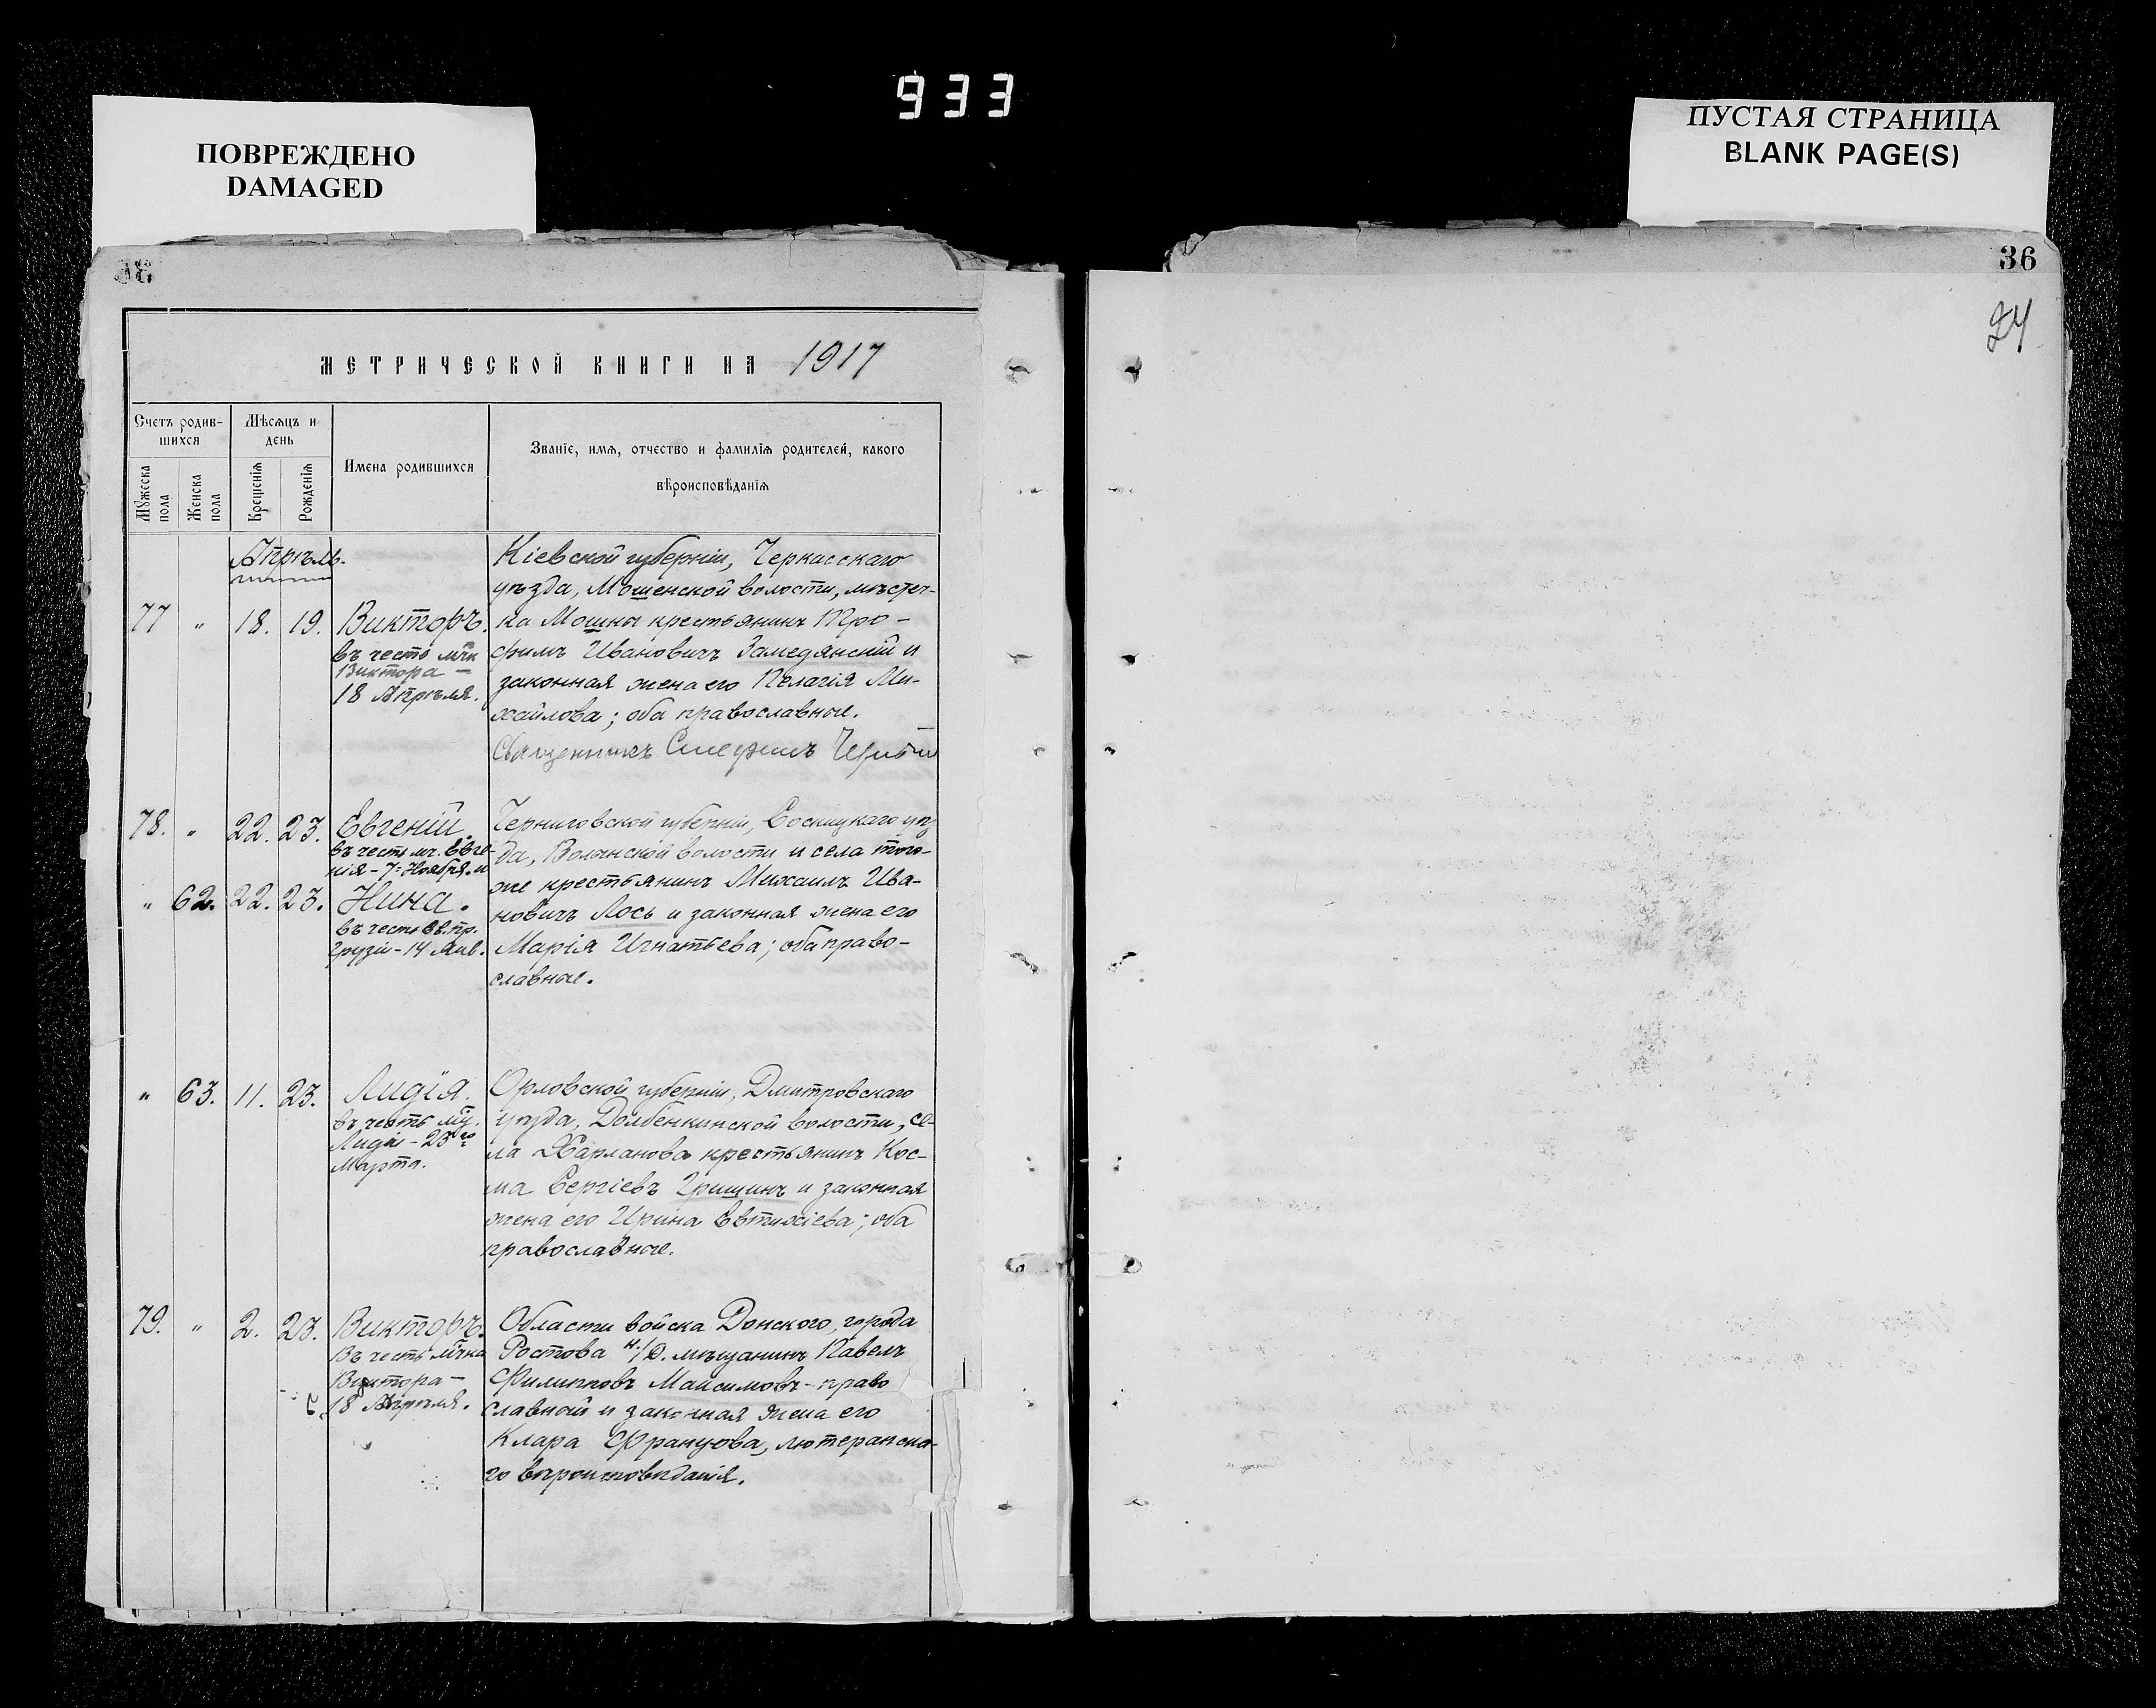 933
ПОВРЕЖДЕНО
DAMAGED
ПУСТАЯ СТРАНИЦА
BLANK PAGE(S)
36
24
МЕТРИЧЕСКОЙ КНИГИ НА 1917
Счетъ родив-
шихся
Мѣсяцъ и
день
Имена родившихся
Званіе, имя, отчество и фамилія родителей, какого
вѣроисповѣданія
Мужеска
пола
Женска
пола
Крещенія
Рожденія
Апрѣль.
Кіевской губерніи, Черкасскаго
уѣзда, Мошенской волости, мѣстеч-
77 " 18. 19. Викторъ. ка Мошны крестьянинъ Тро-
въ честь мчк фимъ Ивановичъ Замедянскій и
Виктора —
законная жена его Пелагія Ми-
18 Апрѣля.
хайлова; оба православные.
Священникъ
78. " 22. 23. Евгеній. Черниговской губерніи, Сосницкаго уѣз
въ честь мч. Евге-
да, Волынской волости и села того-
нія - 7 Ноября. и
же крестьянинъ Михаилъ Ива-
" 62. 22. 23. Нина.
новичъ Лось и законная жена его
въ честь св. пр.
Грузіи - 14 Янв. Марія Игнатьева; оба право-
славные.
" 63. 11. 23. Лидія. Орловской губерніи, Дмитровскаго
въ честь мц. уѣзда, Долбенкинской волости, се-
Лидіи - 23го
Марта. ла Харланова крестьянинъ Кос-
ма Сергіевъ Гришинъ и законная
жена его Ирина Евтихіева; оба
православные.
79. " 2. 23. Викторъ. Области войска Донского, города
Въ честь мчка Ростова н./Д. мѣщанинъ Павелъ
Виктора — Филипповъ Максимовъ - право
18 Апрѣля. славный и законная жена его
Клара Францова, лютеранска-
го вѣроисповѣданія.